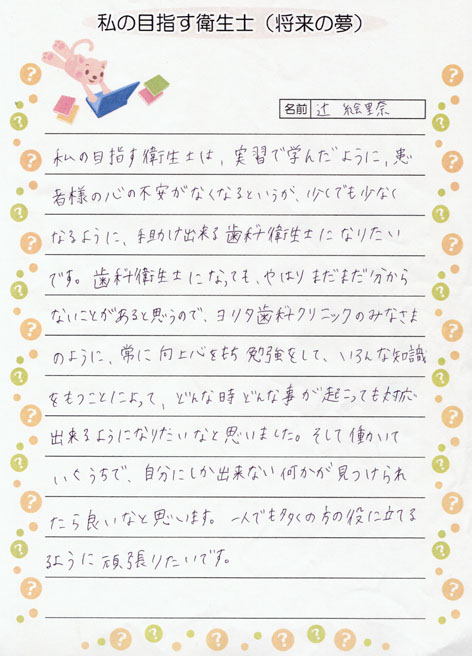 私の目指す衛生士（将来の夢）
名前 辻 絵里奈
私の目指す衛生士は、実習で学んだように、患
者様の心の不安がなくなるというか、少しでも少なく
なるように、手助け出来る歯科衛生士になりたい
です。歯科衛生士になっても、やはりまだまだ分から
ないことがあると思うので、ヨリタ歯科クリニックのみなさま
のように、常に向上心をもち勉強をして、いろんな知識
をもつことによって、どんな時どんな事が起こっても対応
出来るようになりたいなと思いました。そして働いて
いくうちで、自分にしか出来ない何かが見つけられ
たら良いなと思います。一人でも多くの方の役に立てる
るように頑張りたいです。